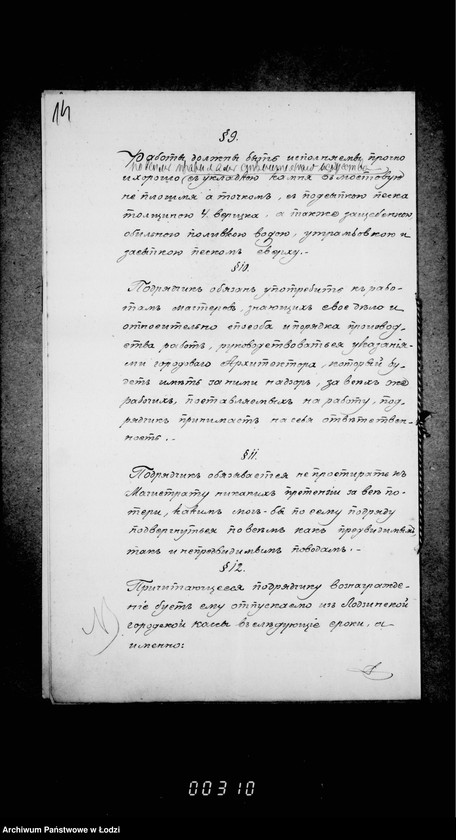 14
§ 9.
Работы должны быть исполняемы прочно
по всем правиламъ строительнаго искусства
и хорошо съ укладкою камня въ мостовую
не плашмя а тычкомъ, съ подсыпкою песка
толщиною 4. вершка, а также защебенкою
обильною поливкою водою, утрамбовкою и
засыпкою пескомъ сверху.-
§ 10.
Подрядчикъ обязанъ употребить къ рабо-
тамъ мастеровъ, знающихъ свое дѣло и
относительно способа и порядка производ-
ства работъ, руководствоваться указанія-
ми городоваго Архитектора, который бу-
детъ имѣть за ними надзоръ, за всѣхъ же
рабочихъ, поставляемыхъ на работу, под-
рядчикъ принимаетъ на себя отвѣтствен-
ность.-
§ 11.
Подрядчикъ обязывается не простирать къ
Магистрату никакихъ претензіи за всѣ по-
тери, какимъ могъ-бы по сему подряду
подвергнуться по всѣмъ какъ предвидимымъ
такъ и непредвидимымъ поводамъ.-
§ 12.
Причитающееся подрядчику вознагражде-
ніе будетъ ему отпускаемо изъ Лодзинской
городской кассы въ слѣдующіе сроки, а
именно:
00310
Archiwum Państwowe w Łodzi